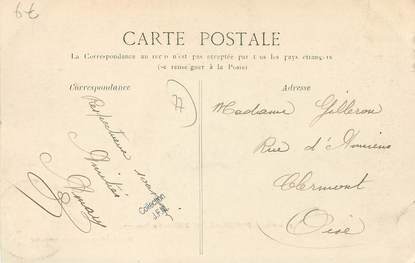 CARTE POSTALE
La Correspondance au recto n'est pas acceptée par tous les pays étrangers
(se renseigner à la Poste)
Correspondance
Adresse
Respectueux
Amitiés
Collection
Madame Gilleron
Rue d'Amiens
Clermont
Oise